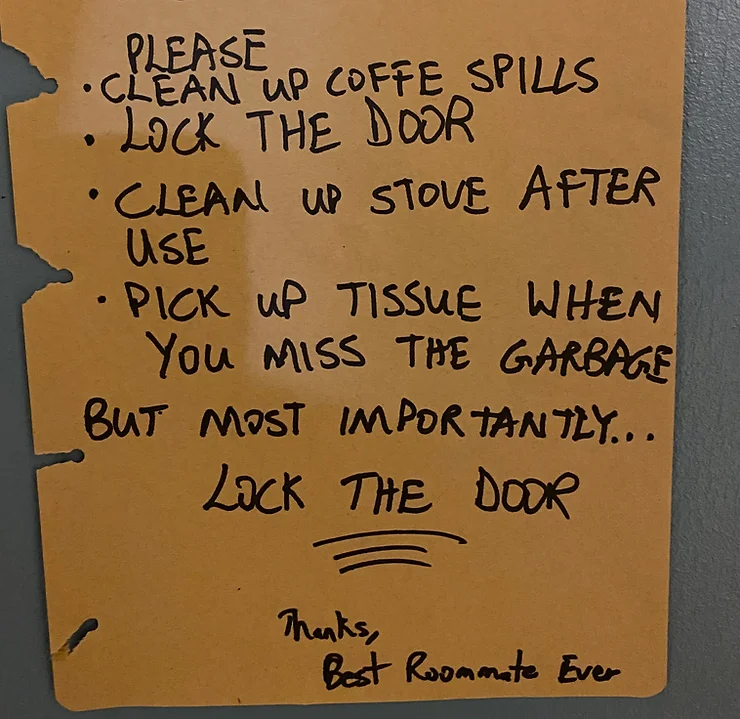 PLEASE
• CLEAN UP COFFE SPILLS
• LOCK THE DOOR
• CLEAN UP STOVE AFTER
USE
• PICK UP TISSUE WHEN
YOU MISS THE GARBAGE
BUT MOST IMPORTANTLY...
LOCK THE DOOR
Thanks,
Best Roommate Ever